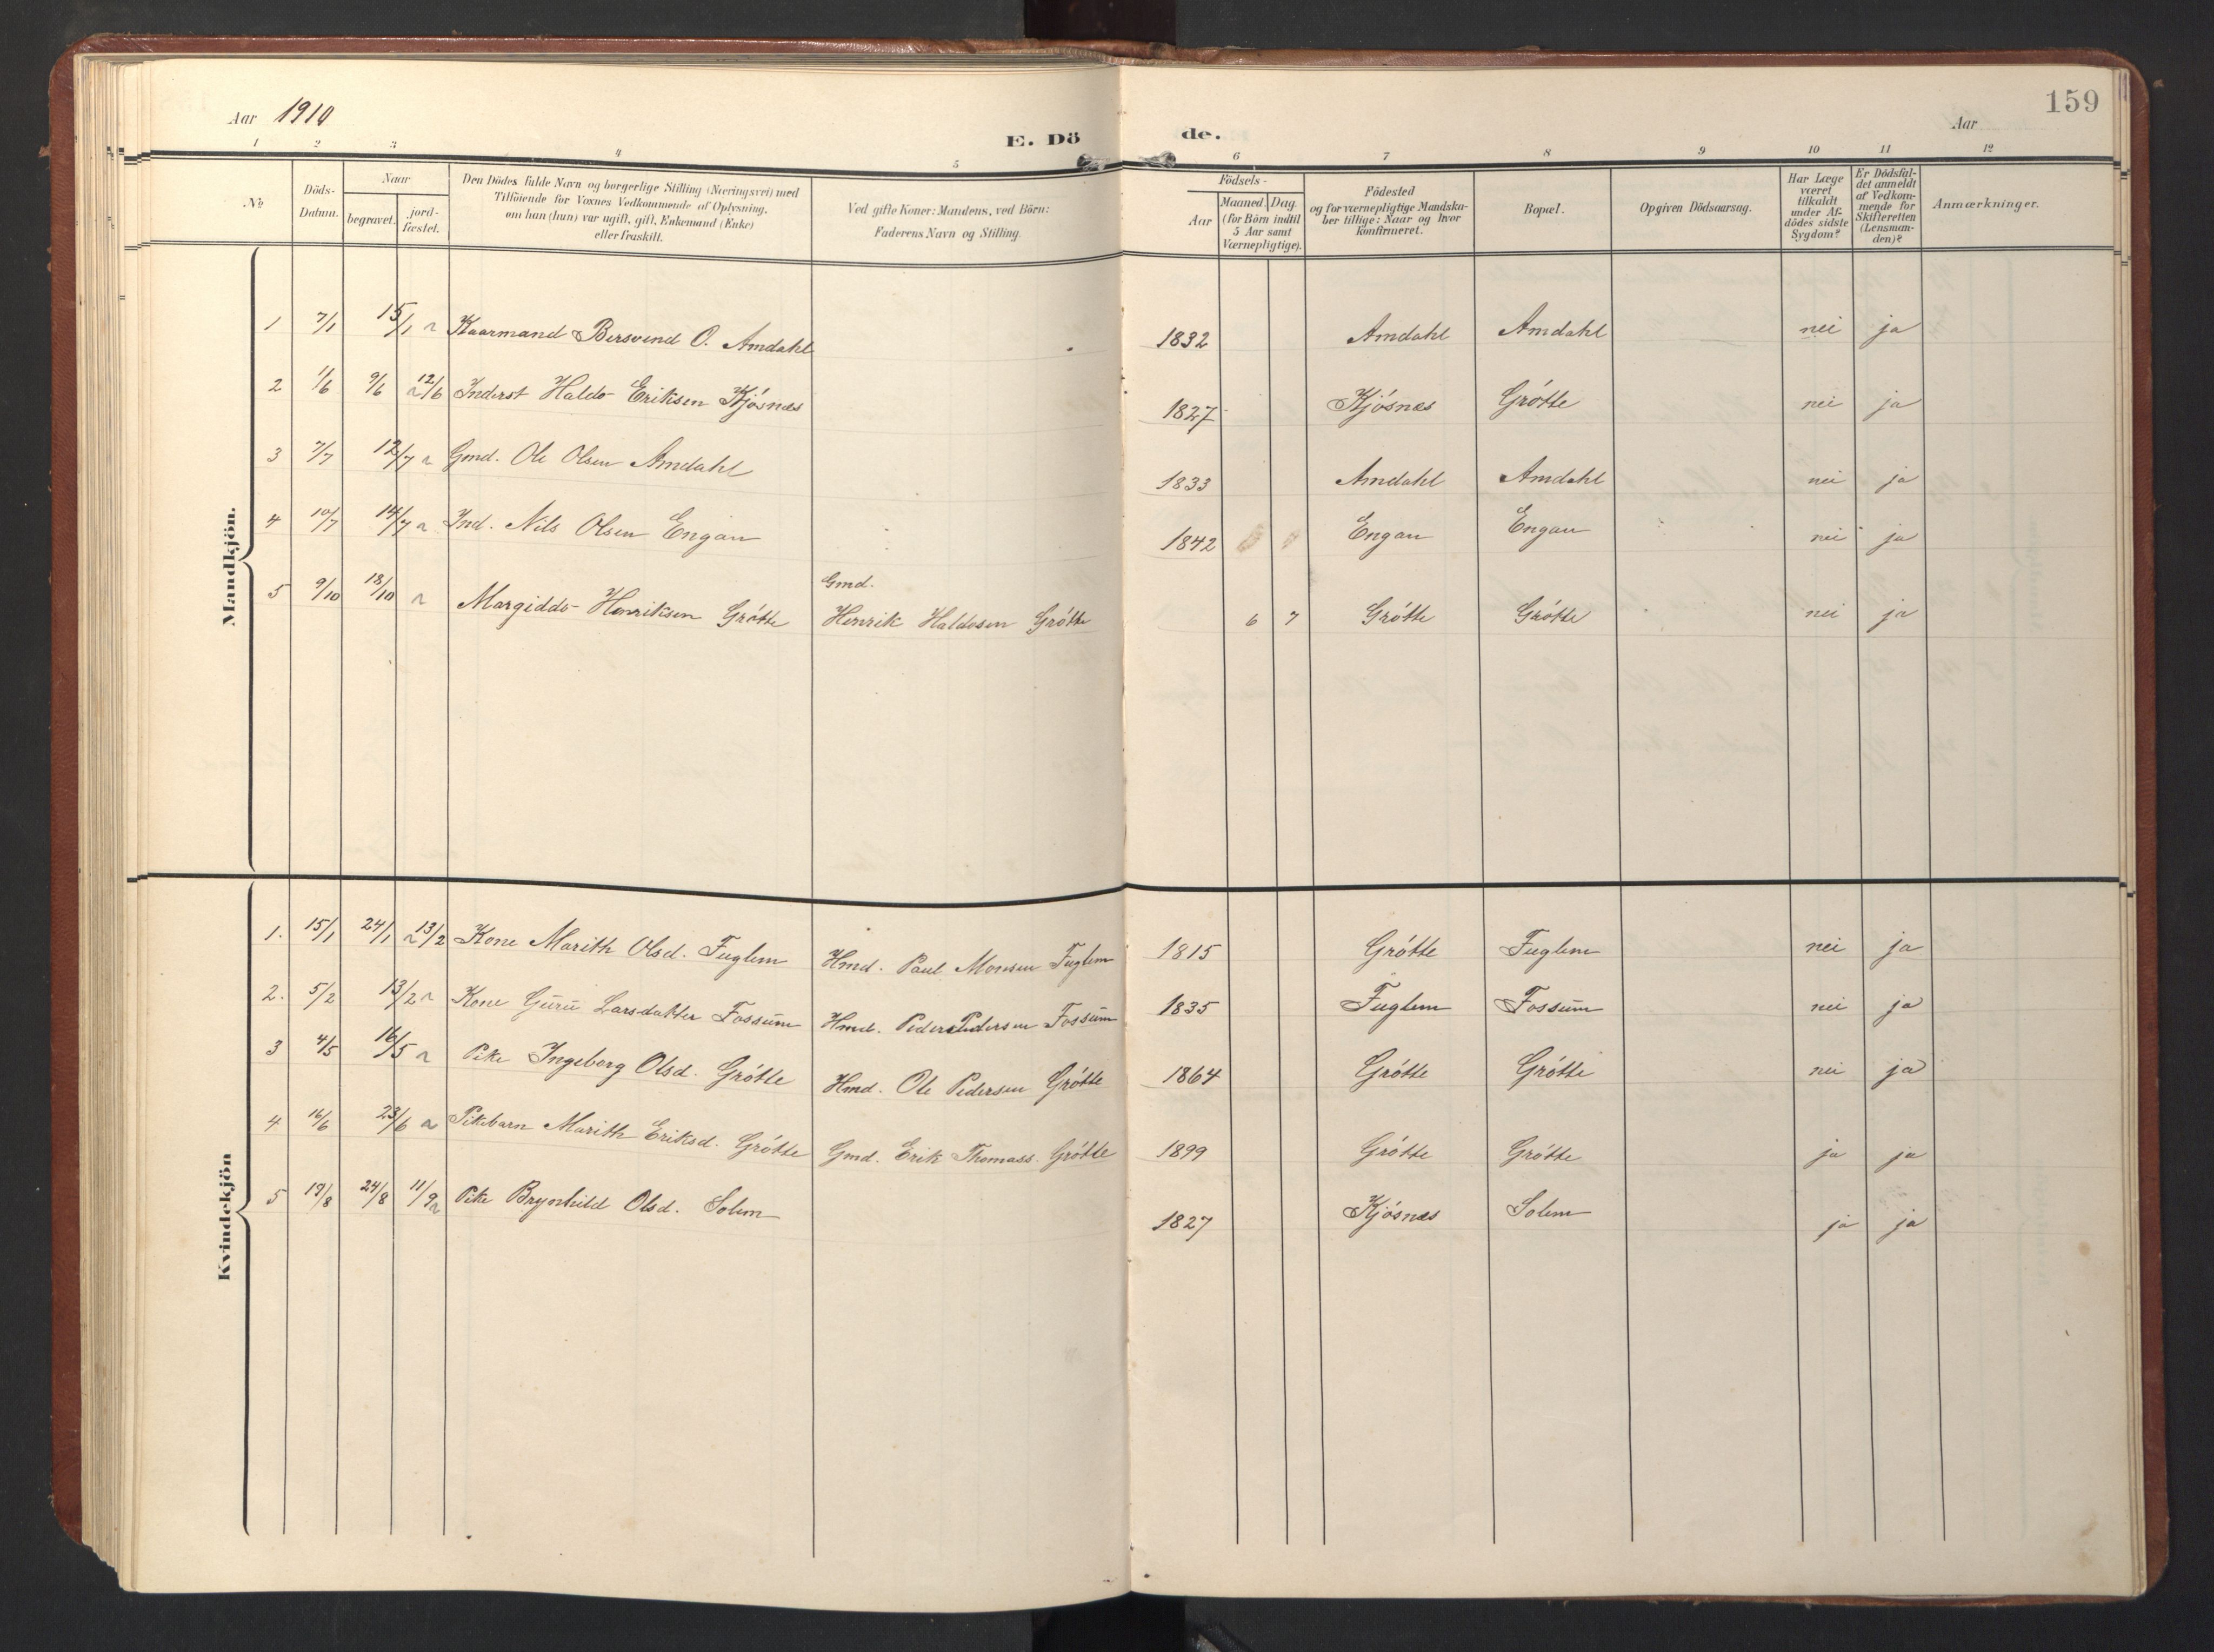 159
Aar 1910
E. Dö de.
Aar
1 2 3 4 5 6 7 8 9 10 11 12
No
Döds-Datum.
Naar
begravet.
jord-fæstet.
Den Dödes fulde Navn og borgerlige Stilling (Næringsvei) med
Tilföiende for Voxnes Vedkommende af Oplysning,
om han (hun) var ugift, gift, Enkemand (Enke)
eller fraskilt.
Ved gifte Koner: Mandens, ved Börn:
Faderens Navn og Stilling.
Födsels-
Aar
Maaned. Dag.
(for Börn indtil
5 Aar samt
Værnepligtige).
Födested
og for værnepligtige Mandska-
ber tillige: Naar og hvor
konfirmeret.
Bopæl.
Opgiven Dödsaarsag.
Har Læge
været
tilkaldt
under Af-
dödes sidste
Sygdom?
Er Dödsfal-
det anmeldt
af Vedkom-
mende for
Skifteretten
(Lensman-
den)?
Anmærkninger.
Mandkjön.
1 7/1 15/1 Kaarmand Bersvend O. Amdahl 1832 Amdahl Amdahl nei ja
2 1/6 9/6 12/6 Inderst Haldo Eriksen Kjösnæs 1827 Kjösnæs Grötte nei ja
3 7/7 12/7 Gmd. Ole Olsen Amdahl 1833 Amdahl Amdahl nei ja
4 10/7 14/7 Ind. Nils Olsen Engan 1842 Engan Engan nei ja
5 9/10 18/10 Margiddo Henriksen Grötte Gmd. Henrik Haldosen Grötte 6 7 Grötte Grötte nei ja
Kvindekjön
1. 15/1 24/1 13/2 Kone Marith Olsd. Fuglem Hmd. Paul Monsen Fuglem 1815 Grötte Fuglem nei ja
2. 5/2 13/2 Kone Guru Larsdatter Fossum Hmd. Peder Pedersen Fossum 1835 Fuglem Fossum nei ja
3 4/5 16/5 Pike Ingeborg Olsd. Grötte Hmd. Ole Pedersen Grötte 1864 Grötte Grötte nei ja
4 16/6 23/6 Pikebarn Marith Eriksd. Grötte Gmd. Erik Thomass. Grötte 1899 Grötte Grötte ja ja
5 19/8 24/8 11/9 Pike Brynhild Olsd. Solem 1827 Kjösnæs Solem ja ja